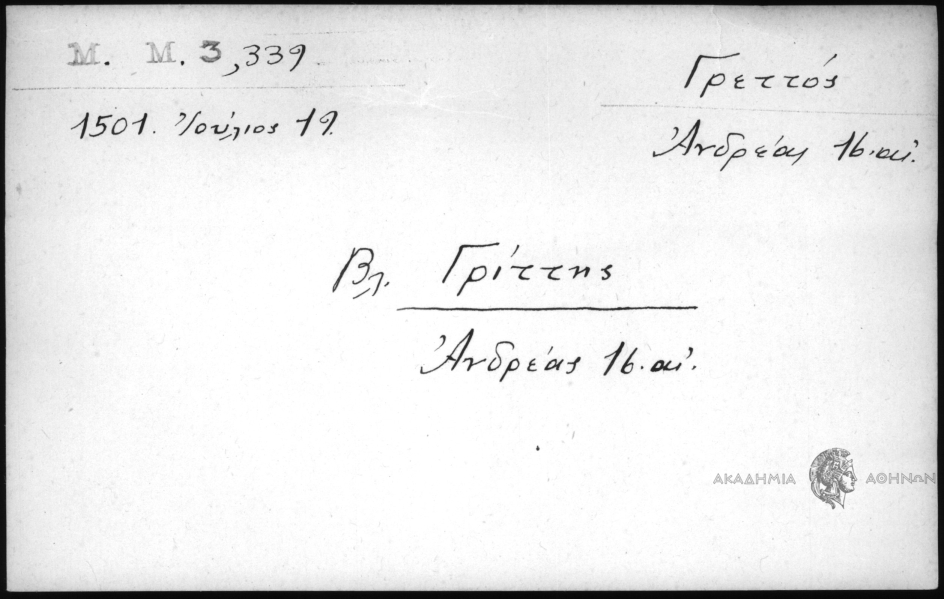 Μ. Μ. 3,339
Γρεττός
1501. Ἰούλιος 19.
Ἀνδρέας 16. αἰ.
Βλ. Γρίττης
Ἀνδρέας 16. αἰ.
ΑΚΑΔΗΜΙΑ ΑΘΗΝΩΝ